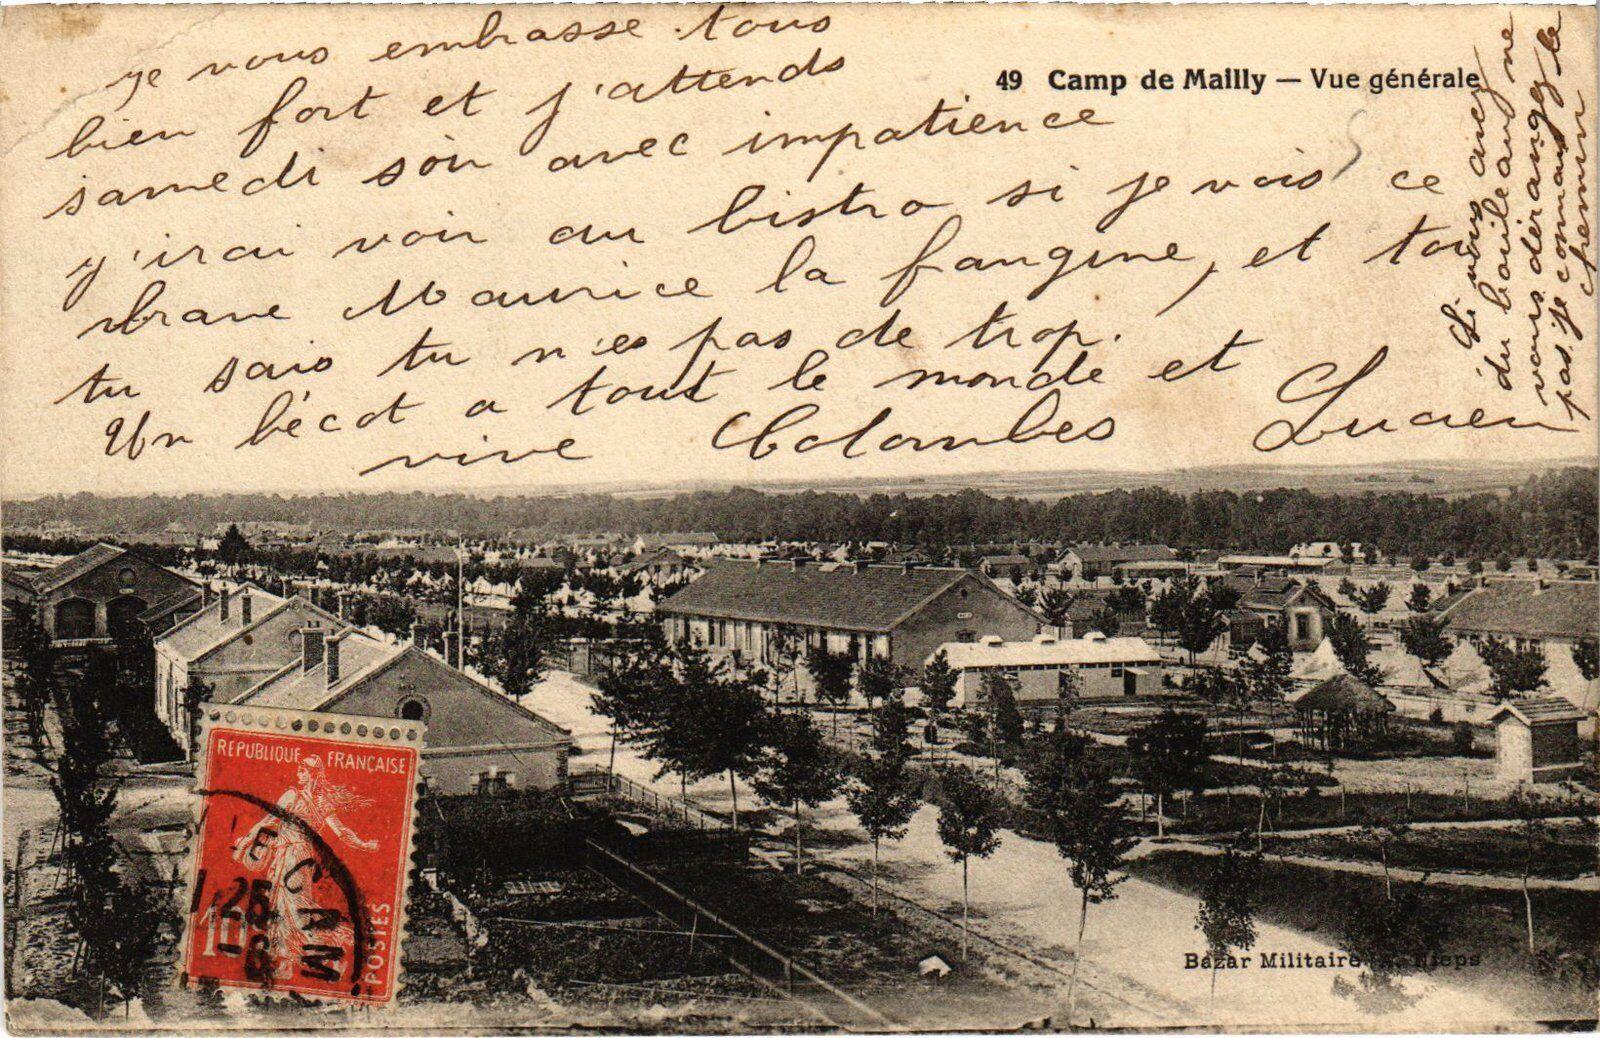 je vous embrasse tous
bien fort et j'attends
samedi soir avec impatience
j'irai voir au bistro si je vois ce
brave Maurice la frangine, et toi
tu sais tu n'es pas de trop.
Un bécot a tout le monde et
vive Colombes Lucien
49 Camp de Mailly — Vue générale
Si vous avez
du boulot ne
vous dérangez
pas je connais le
chemin
REPUBLIQUE FRANÇAISE
LE CAM
1 25
10
-6
POSTES
Bazar Militaire A. Nieps